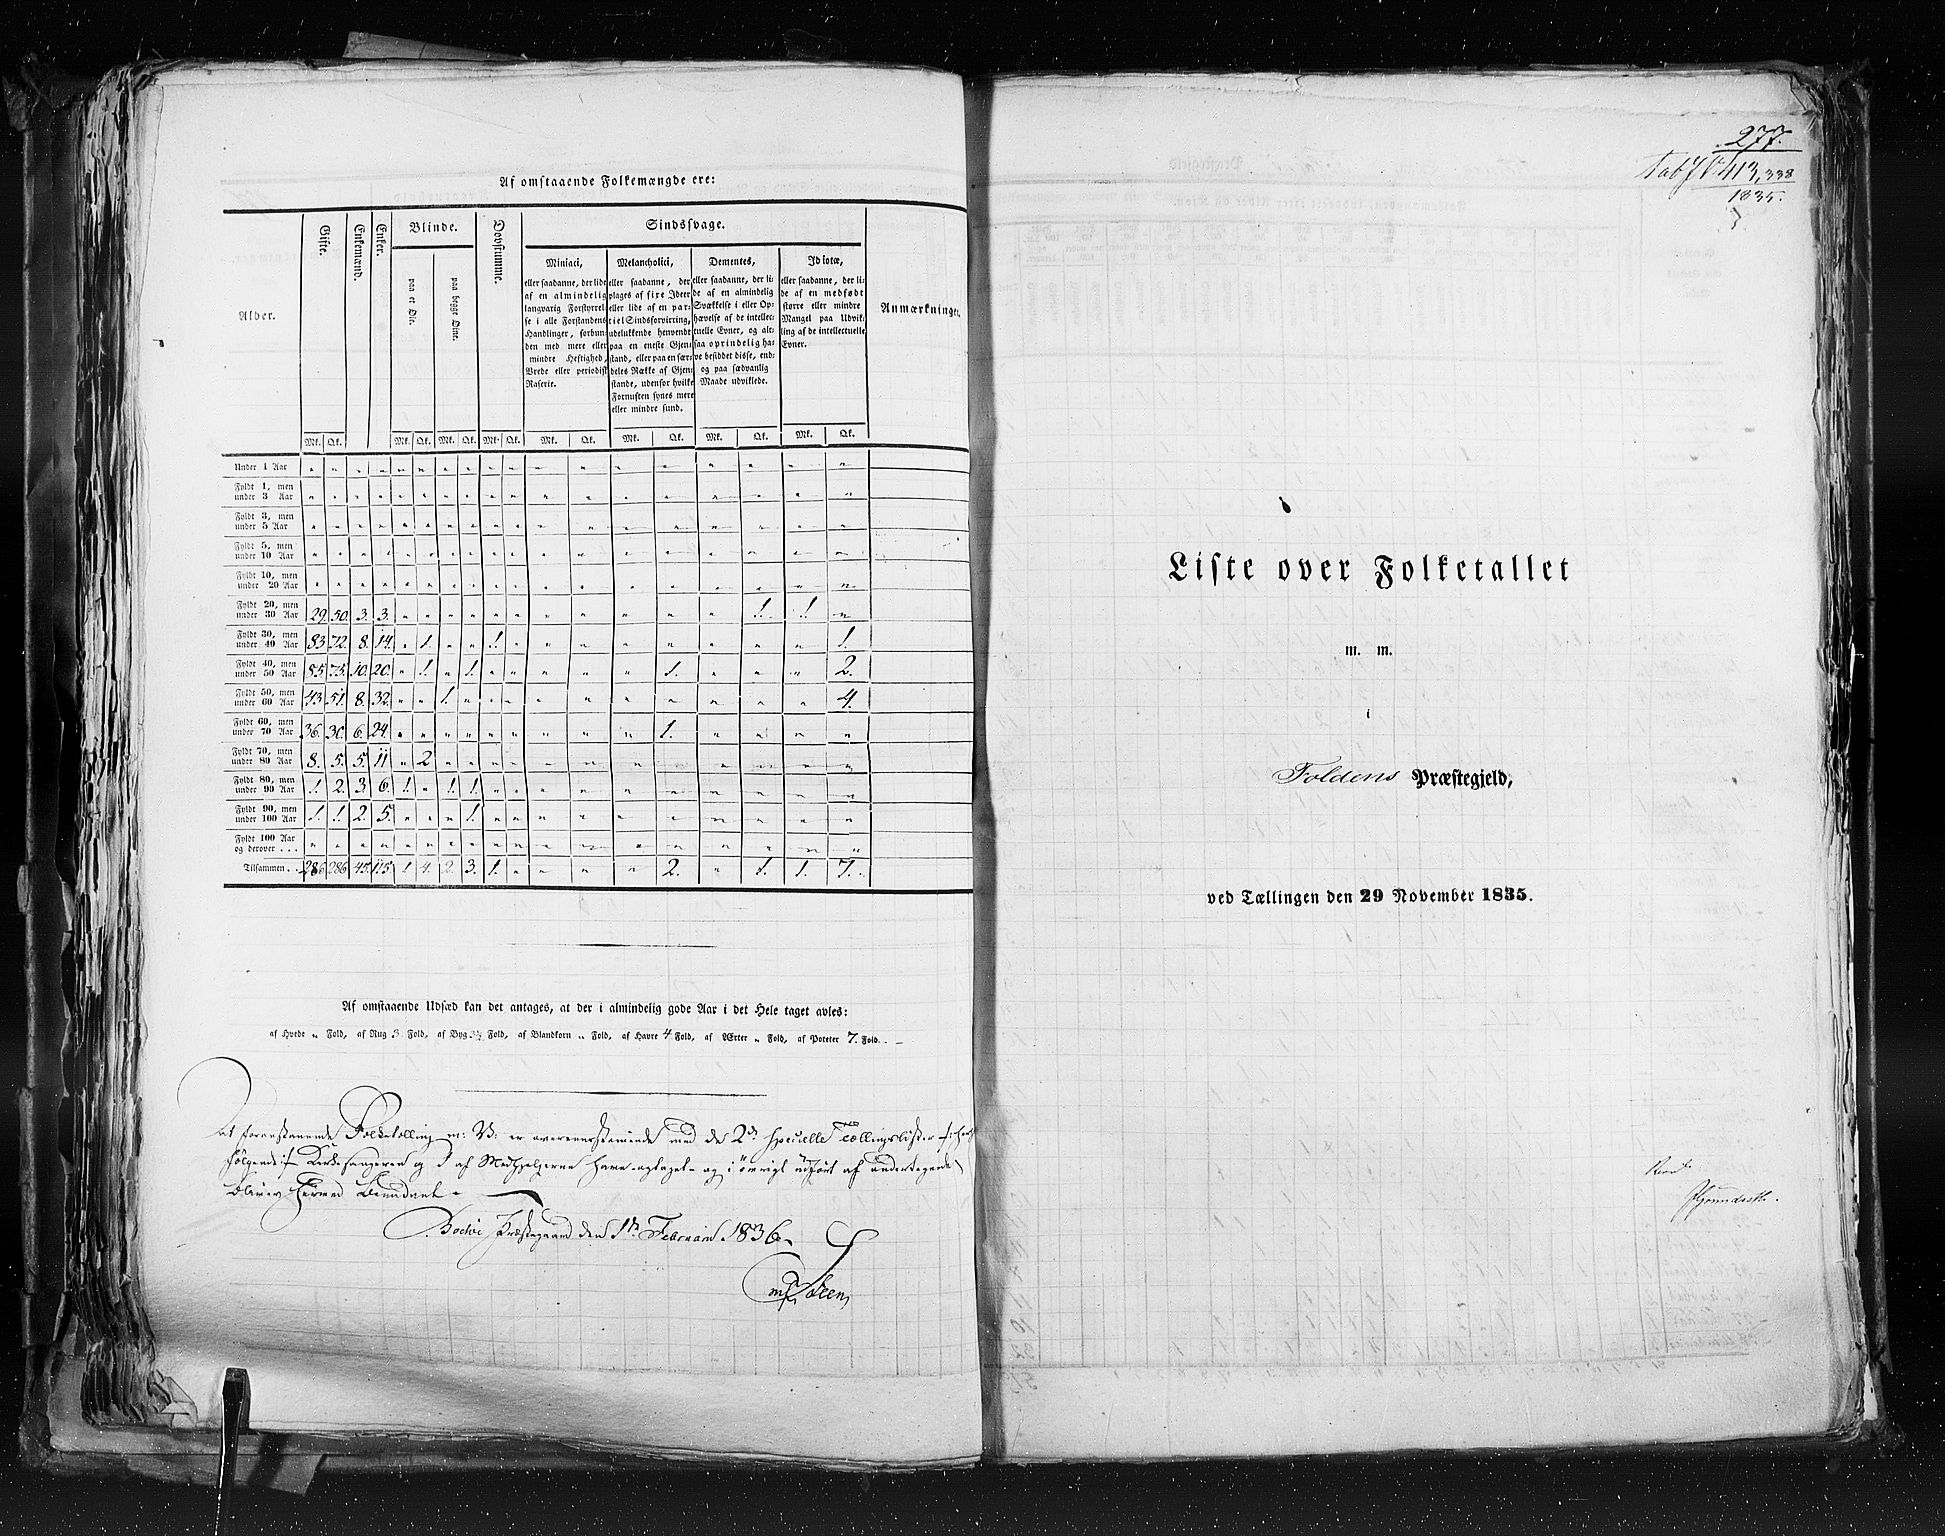 Af omstaaende Folkemængde ere:
Alder.
Gifte.
Enkemænd.
Enker.
Blinde.
paa et Øie.
paa begge Øine.
Døvstumme.
Sindssvage.
Miniaci,
eller saadanne, der lide
af en almindelig
langvarig Forstyrrel-
se i alle Forstandens
Handlinger, forbun-
den med mere eller
mindre Heftighed,
Vrede eller periodisk
Raserie.
Melancholici,
eller saadanne, der
plages af fixe Ideer
eller lide af en par-
tiel Sindsforvirring,
udelukkende henvendt
paa en eneste Gjen-
stand, eller paa en sær-
deles Række af Gjen-
stande, udenfor hvilke
Fornuften synes mere
eller mindre sund.
Dementes,
eller saadanne, der li-
de af en almindelig
Svækkelse i eller Op-
hævelse af de intellec-
tuelle Evner, og alt-
saa oprindelig ha-
ve besiddet disse, end-
og paa sædvanlig
Maade udviklede.
Idiotæ,
eller saadanne, der li-
de af en medfødt
større eller mindre
Mangel paa Udvik-
ling af de intellectuelle
Evner.
Anmærkninger.
Mk. Qk. Mk. Qk. Mk. Qk. Mk. Qk. Mk. Qk. Mk. Qk. Mk. Qk. Mk. Qk.
Under 1 Aar " " " " " " " " " " " " " " " " " "
Fyldt 1, men
under 3 Aar " " " " " " " " " " " " " " " " " "
Fyldt 3, men
under 5 Aar " " " " " " " " " " " " " " " " " "
Fyldt 5, men
under 10 Aar " " " " " " " " " " " " " " " " " "
Fyldt 10, men
under 20 Aar " " " " " " " " " " " " " " " " " "
Fyldt 20, men
under 30 Aar 29. 50. 3. 3. " " " " " " " " " " " 1. 1. "
Fyldt 30, men
under 40 Aar 83 72. 8. 14. " 1. " " 1. " " " " " " " " 1.
Fyldt 40, men
under 50 Aar 85. 75. 10. 20. " 1. " 1. " " " " " 1. " " " 2.
Fyldt 50, men
under 60 Aar 43. 51. 8. 32. " " 1. " " " " " " " " " " 4.
Fyldt 60, men
under 70 Aar 36. 30. 6. 24. " " " " " " " " " 1. " " " "
Fyldt 70, men
under 80 Aar 8. 5. 5. 11 " 2 " " " " " " " " " " " "
Fyldt 80, men
under 90 Aar 1. 2. 3 6. 1. " 1. 1. " " " " " " " " " "
Fyldt 90, men
under 100 Aar 1. 1. 2. 5. " " " 1. " " " " " " " " " "
Fyldt 100 Aar
og derover . . . " " " " " " " " " " " " " " " " " "
Tilsammen . . 286 286 45. 115. 1. 4. 2. 3. 1. " " " " 2. " 1. 1. 7.
Af omstaaende Udsæd kan det antages, at der i almindelig gode Aar i det Hele taget avles:
af Hvede " Fold, af Rug 3 Fold, af Byg 3½ Fold, af Blandkorn " Fold, af Havre 4 Fold, af Ærter " Fold, af Poteter 7. Fold.
At foranstaaende Folketælling er overeensstemmende med de 2de specielle Tællingslister
følgende Kirkesangeren og af Medhjelperne have optaget og i øvrigt udført af undertegnede
bliver herved bevidnet.
Bodøe Præstegaard den 1te Februari 1836.
277.
Tab No 413, 338
1835.
Liste over Folketallet
m. m.
i
Foldens Præstegjeld,
ved Tællingen den 29 November 1835.